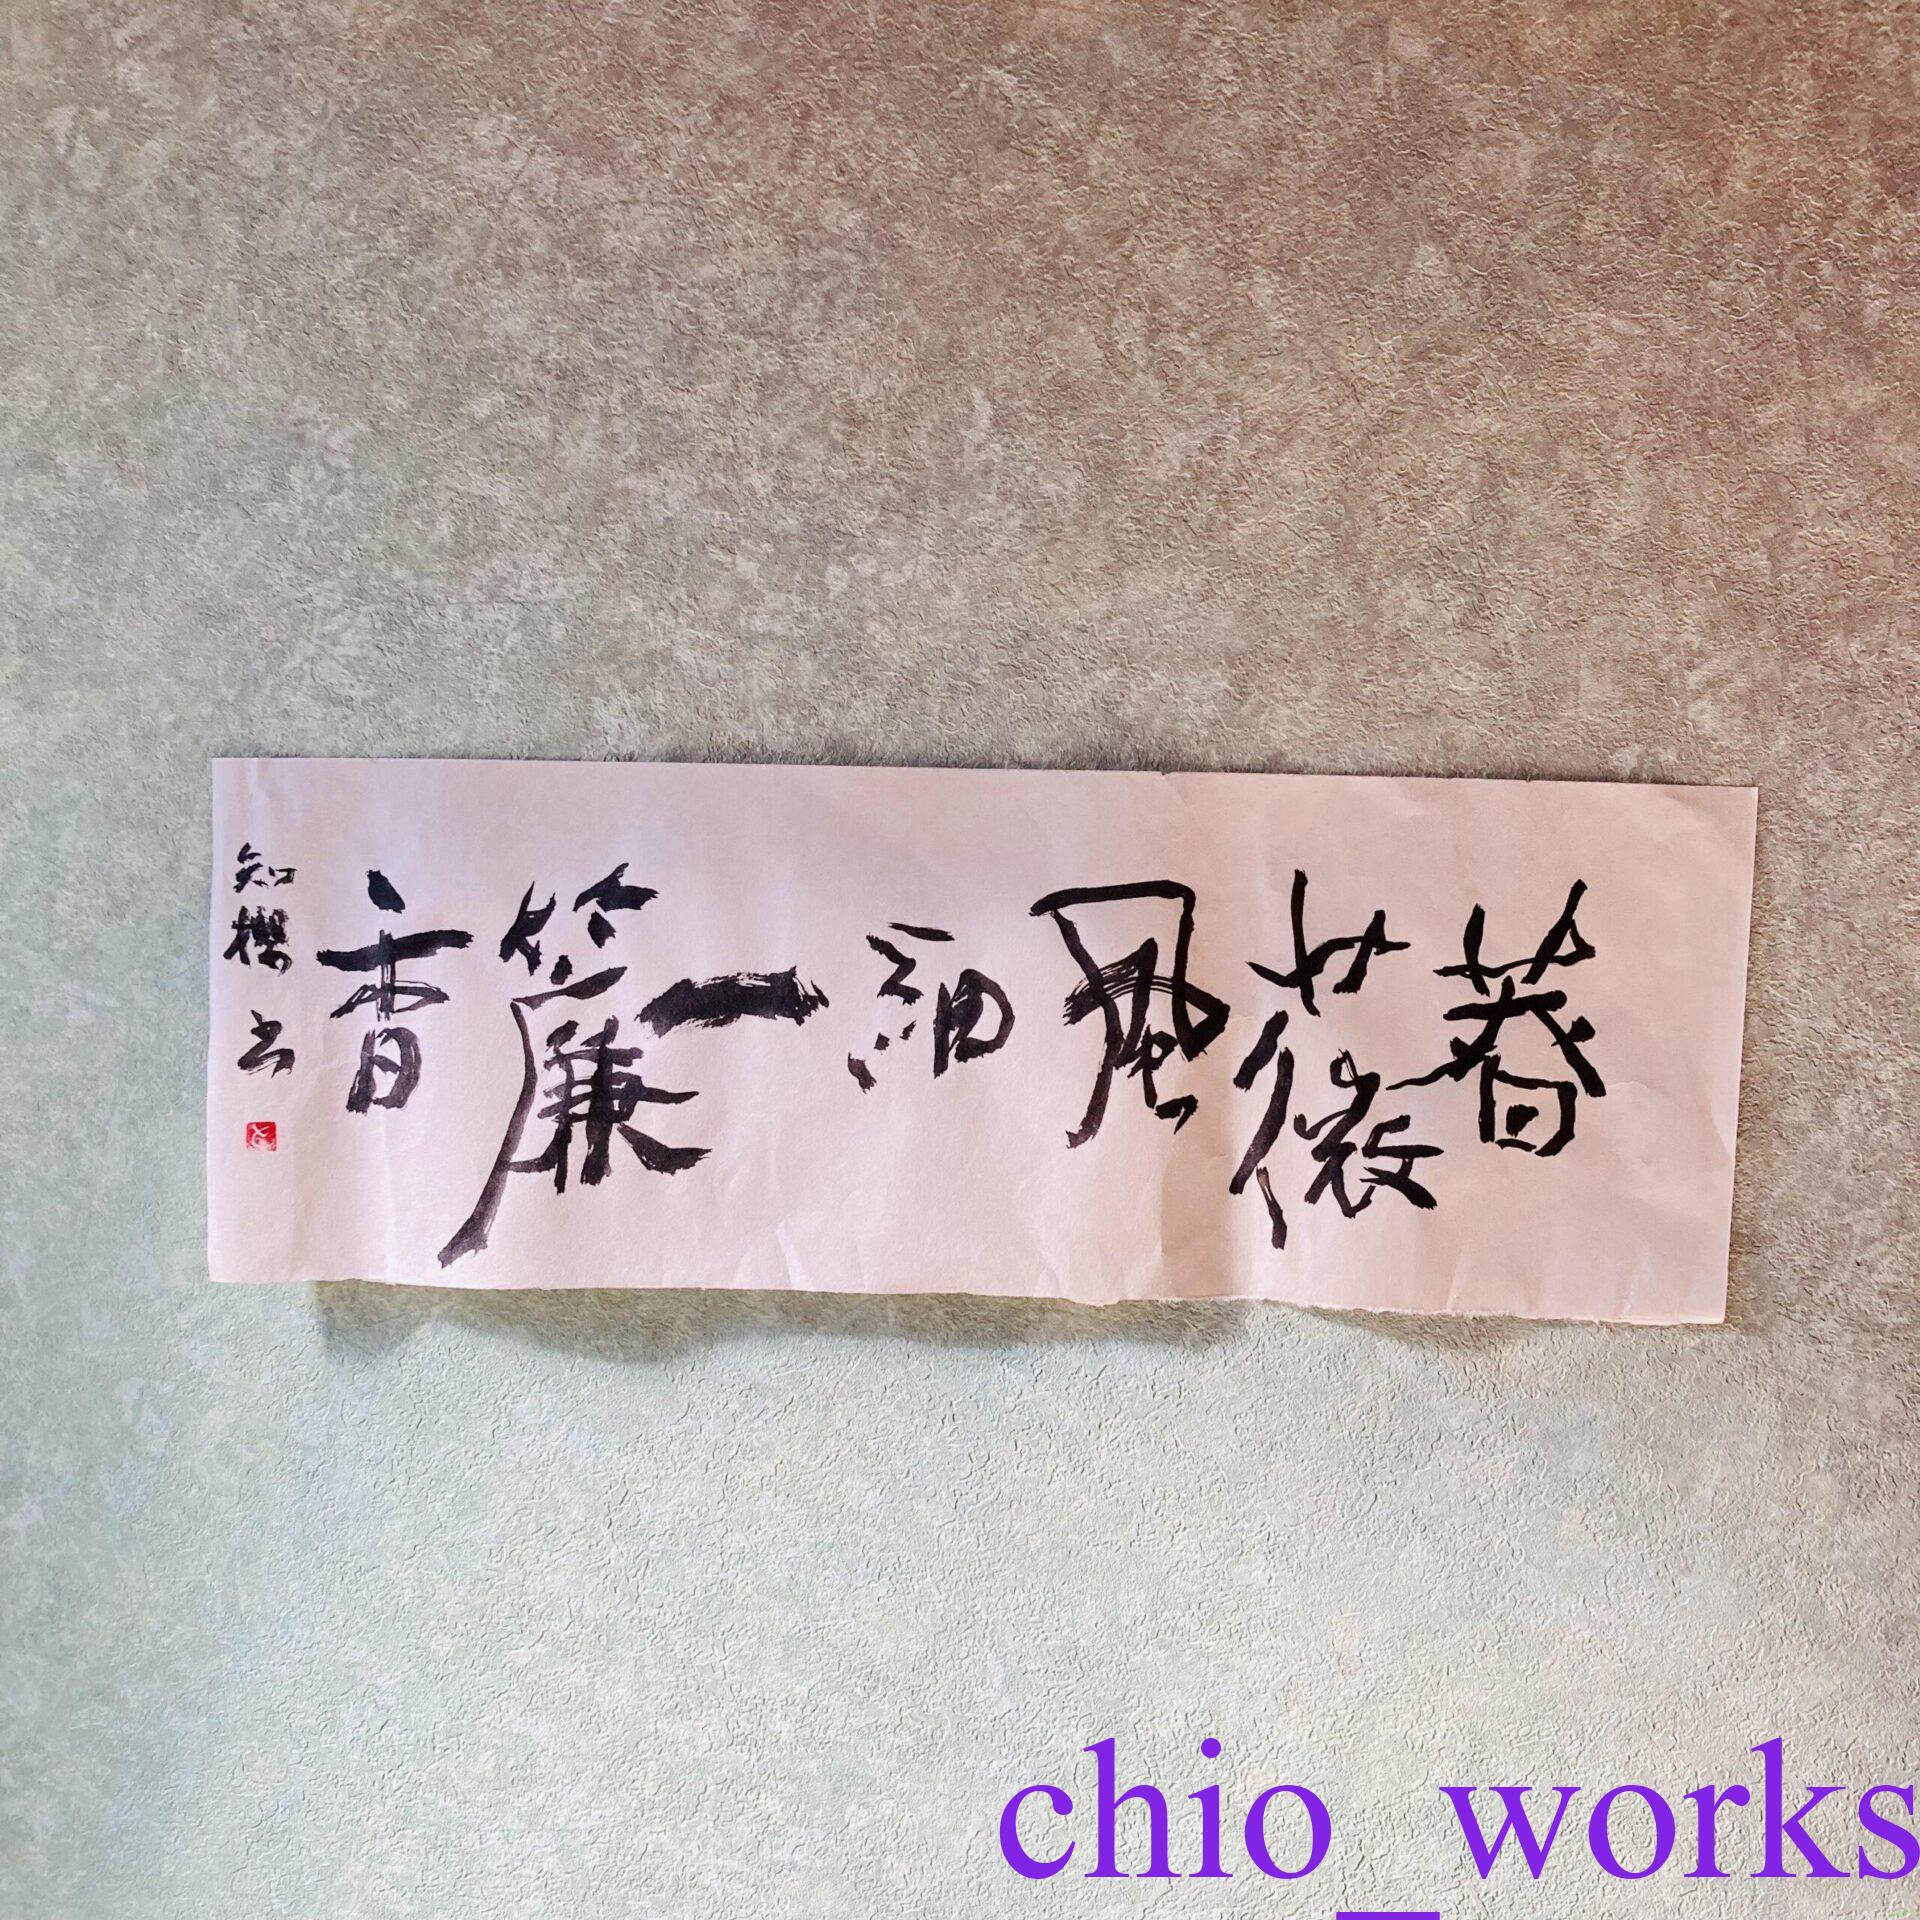 薔薇風細一簾香
知櫻书
chio_works